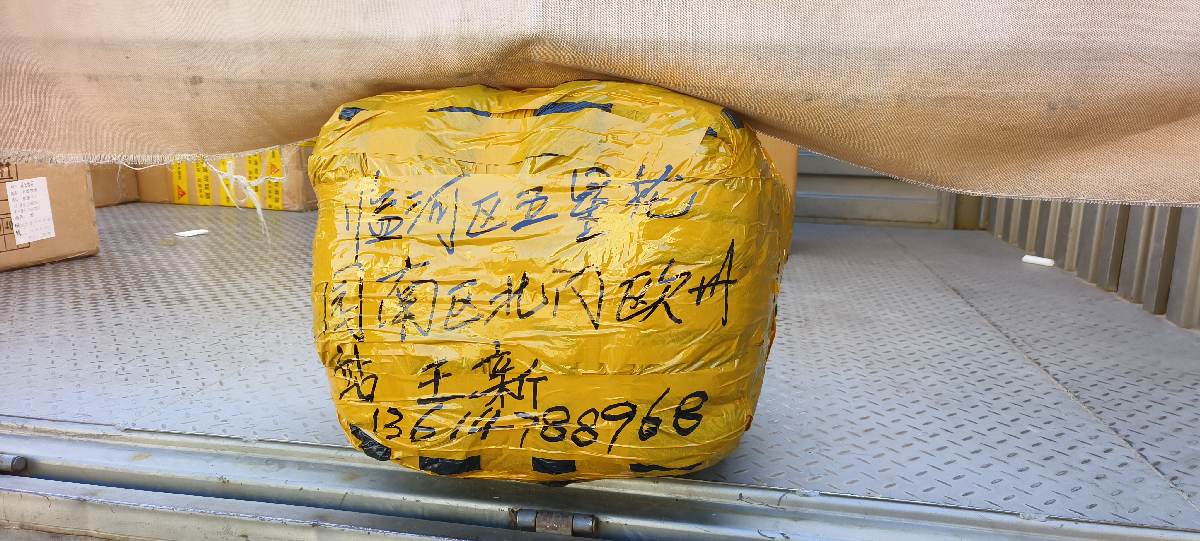 临河区五星花
园南区北门欧州
站 王新
13614788968